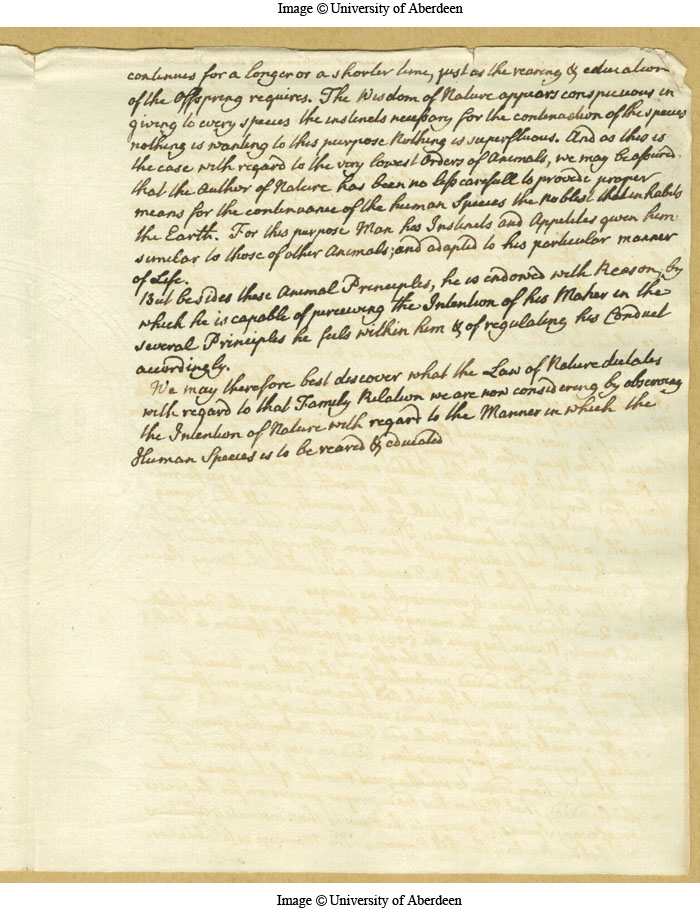 Image © University of Aberdeen
continues for a longer or a shorter time, just as the rearing & education
of the Offspring requires. The Wisdom of Nature appears conspicuous in
giving to every species the instincts necessary for the continuation of the species
nothing is wanting to this purpose Nothing is superfluous. And as this is
the case with regard to the very lowest Orders of Animals, we may be assured
that the Author of Nature has been no less carefull to provide proper
means for the continuance of the human Species the noblest that inhabits
the Earth. For this purpose Man has Instincts and Appetites given him
similar to those of other Animals, and adapted to his particular manner
of Life.
But besides these Animal Principles, he is endowed with Reason, by
which he is capable of perceiving the Intention of his Maker in the
several Principles he feels within him & of regulating his Conduct
accordingly.
We may therefore best discover what the Law of Nature dictates
with regard to that Family Relation we are now considering by observing
the Intention of Nature with regard to the Manner in which the
Human Species is to be reared & educated
Image © University of Aberdeen